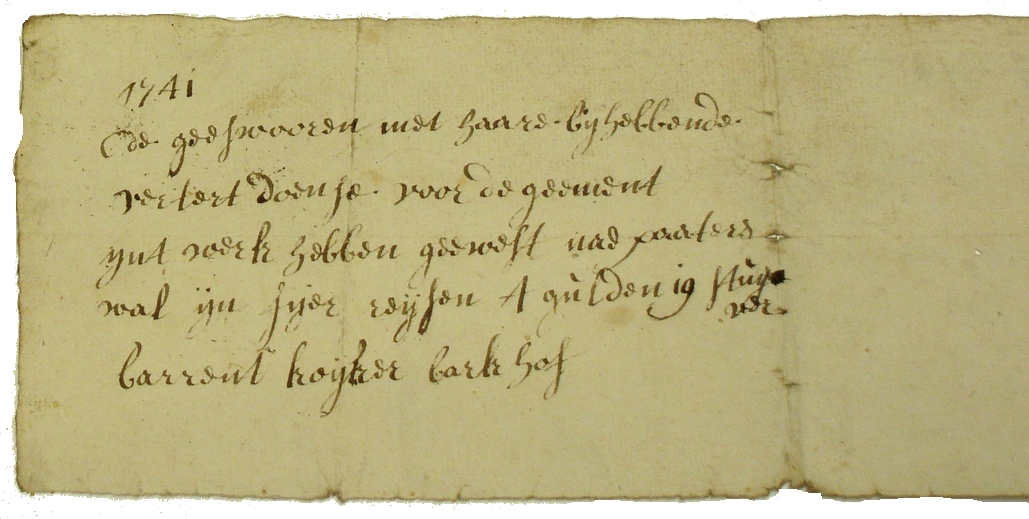 1741
de geeswooren met haare byhebbende
vertert doense voor de geement
ynt werk hebben geewest nae paaters
wal yn syer reysen 4 gùlden 19 stùy
ver
barrent koyker bark hof